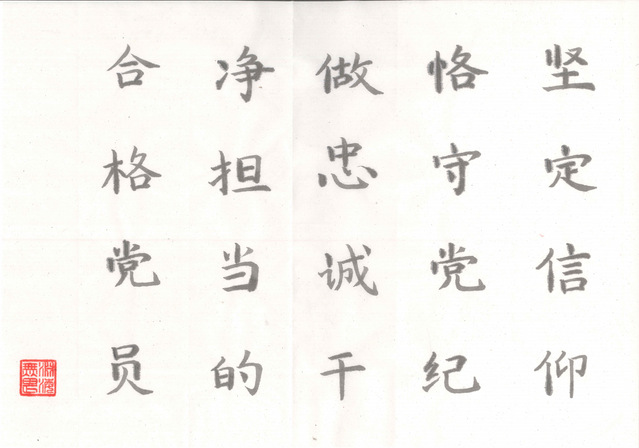 坚定信仰
恪守党纪
做忠诚干
净担当的
合格党员